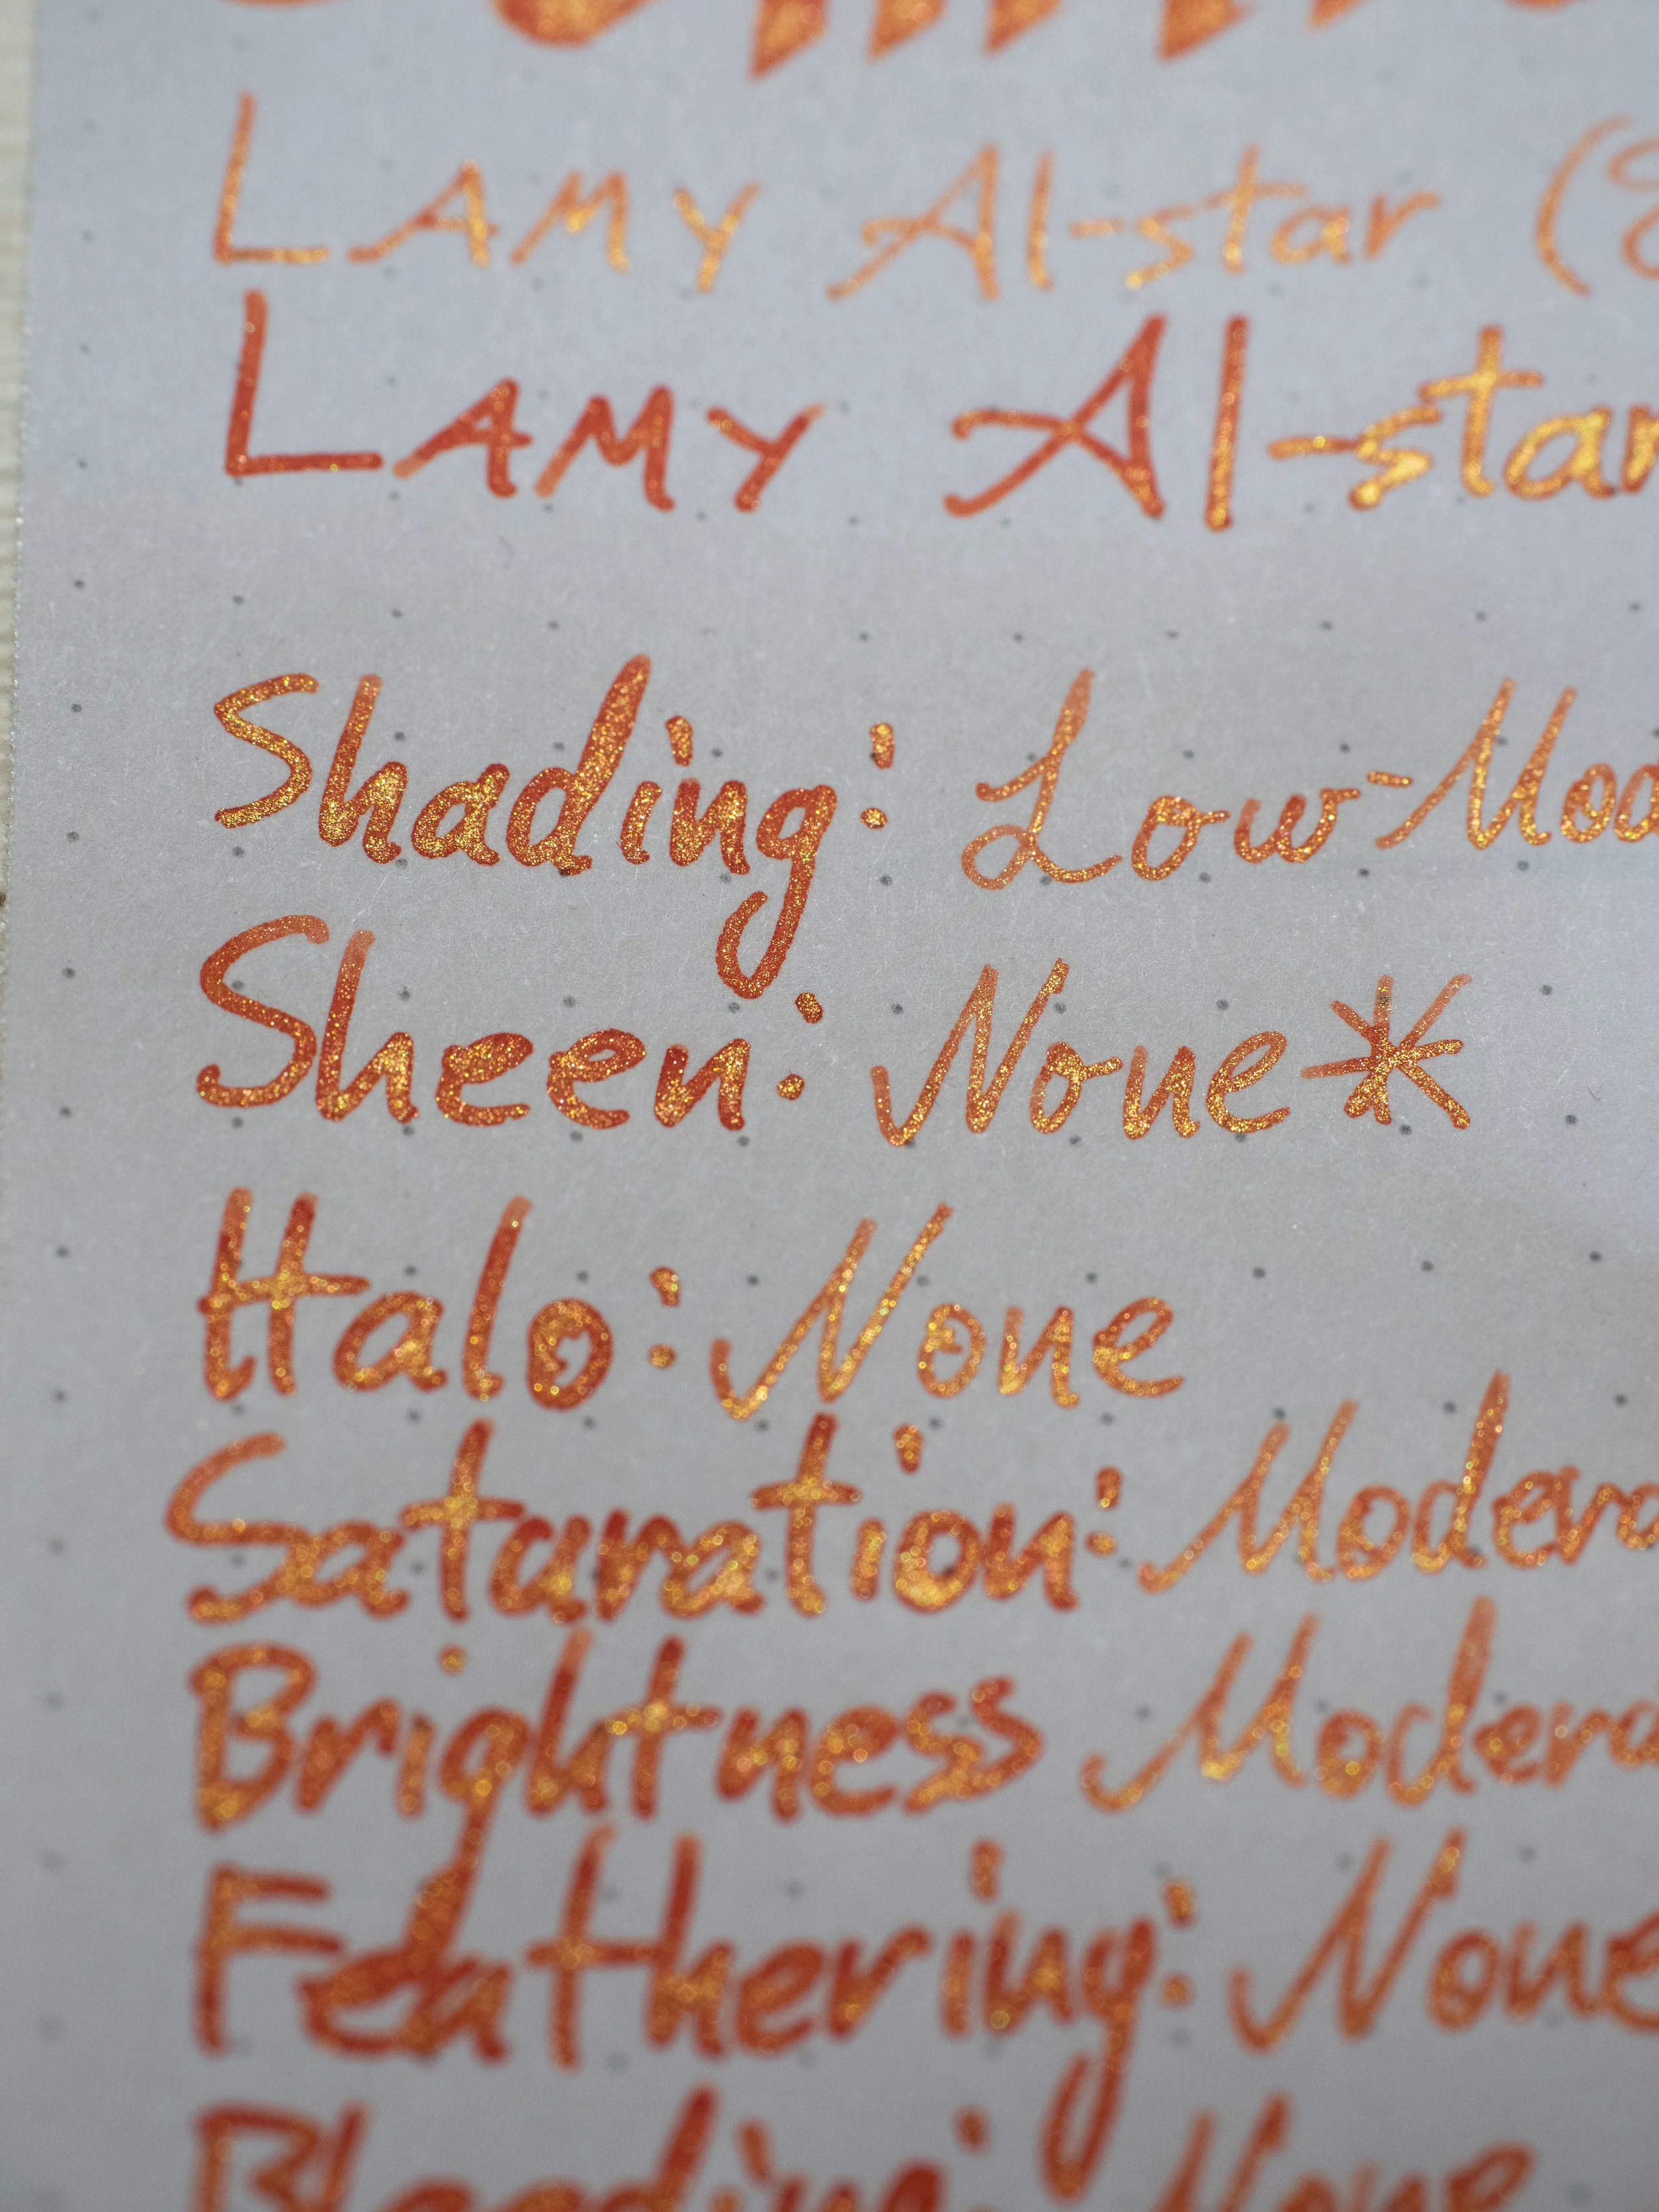 LAMY Al-star (
LAMY Al-star
Shading: Low-Mod
Sheen: None*
Halo: None
Saturation: Modera
Brightness Modera
Feathering: None
Bleeding: None